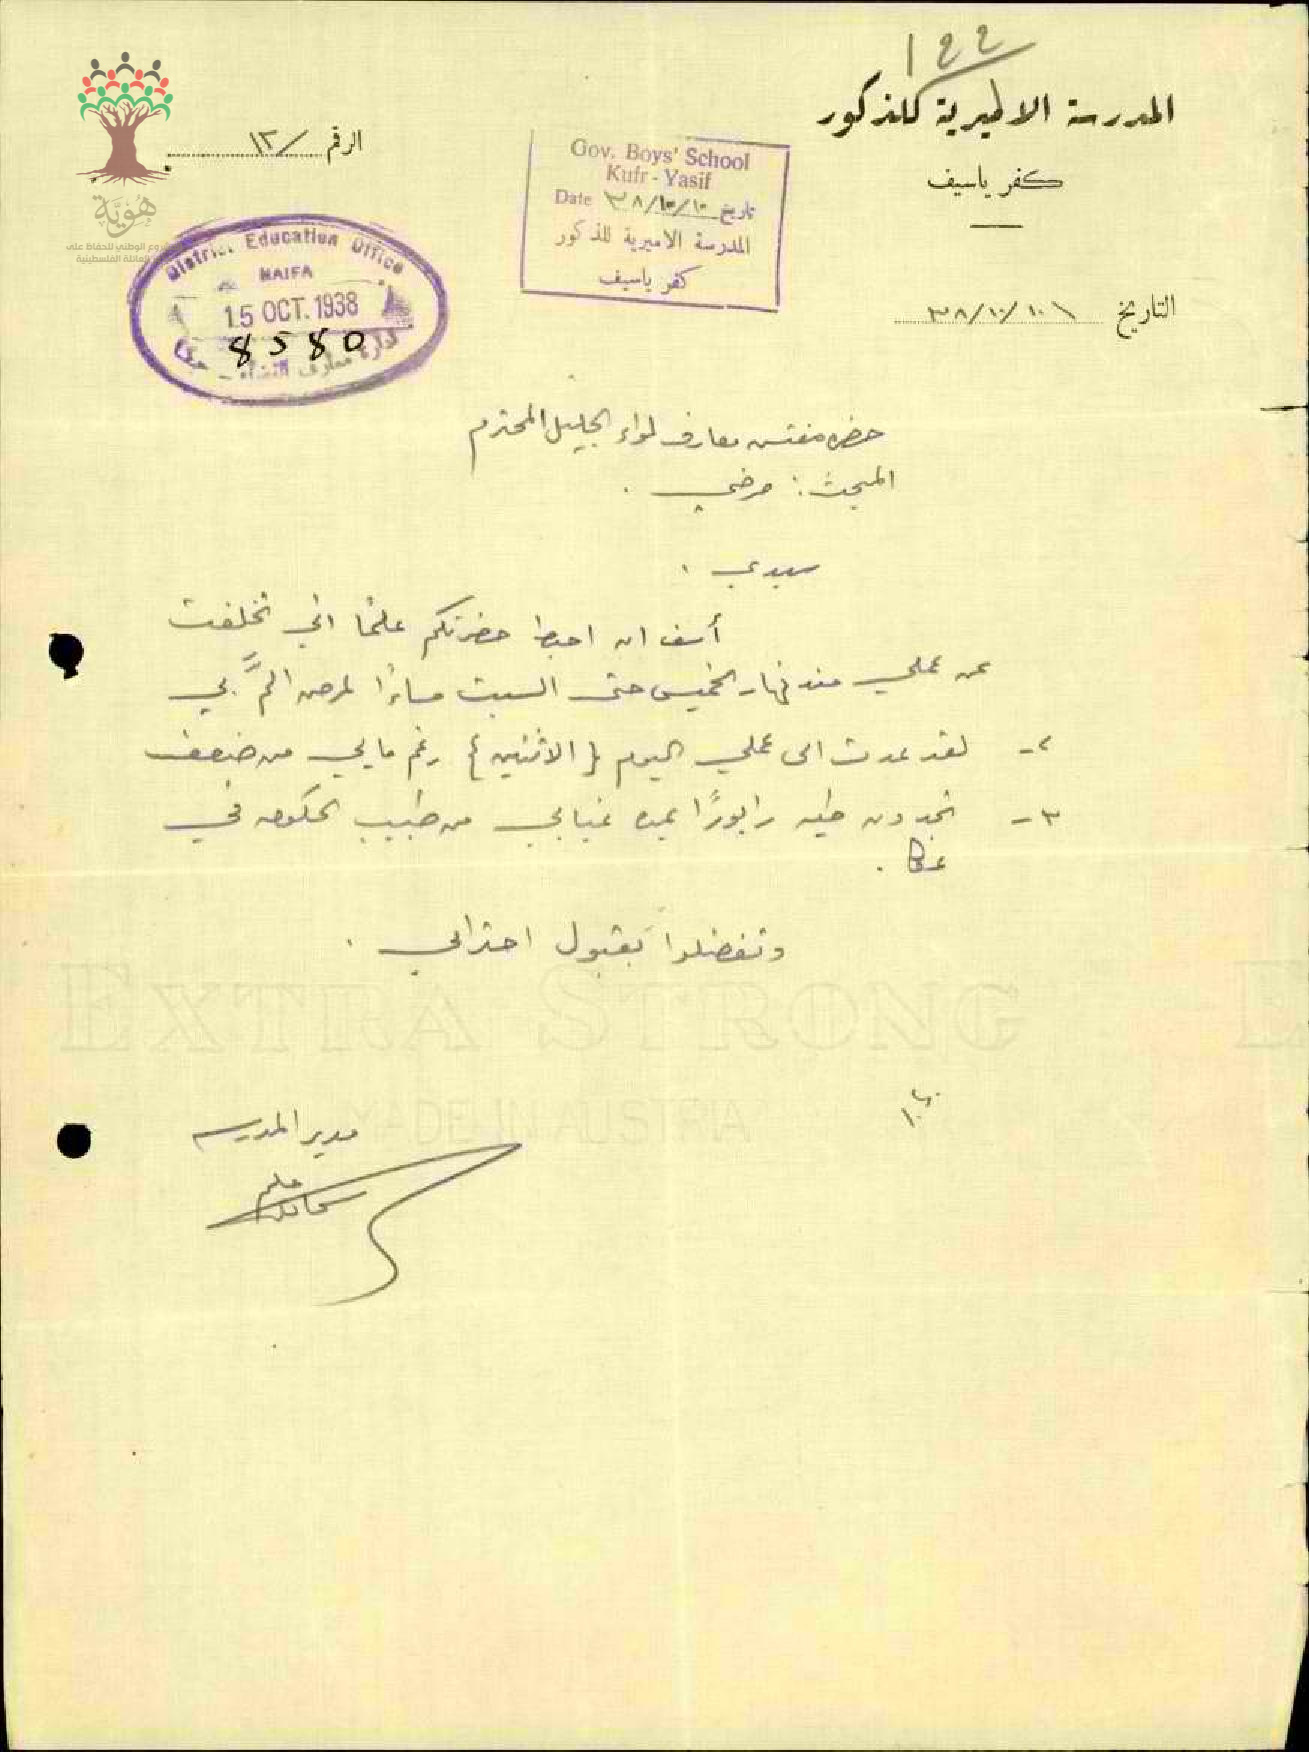 122
المدرسة الاميرية للذكور
كفر ياسيف
الرقم /١٢
Gov. Boys' School
Kufr - Yasif
Date ٣٨/١٠/١٠ تاريخ
المدرسة الاميرية للذكور
كفر ياسيف
هُوِيَّة
المشروع الوطني للحفاظ على
العائلة الفلسطينية
District Education Office
HAIFA
15 OCT. 1938
8580
ادارة معارف القضاء - حيفا
التاريخ ٣٨/١٠/١٠
حضرة مفتش معارف لواء الجليل المحترم
المبحث: مرضي .
سيدي ،
أسف ان احيط حضرتكم علمًا اني تخلفت
عن عملي منذ نهار الخميس حتى السبت مساءًا لمرض المَّ بي
٢- لقد عدت الى عملي اليوم { الاثنين } رغم ما بي من ضعف
٣- تجدون طيه رابورًا بمدة غيابي من طبيب الحكومة في
عكا .
وتفضلوا بقبول احترامي .
EXTRA STRONG
MADE IN AUSTRIA
مدير المدرسه